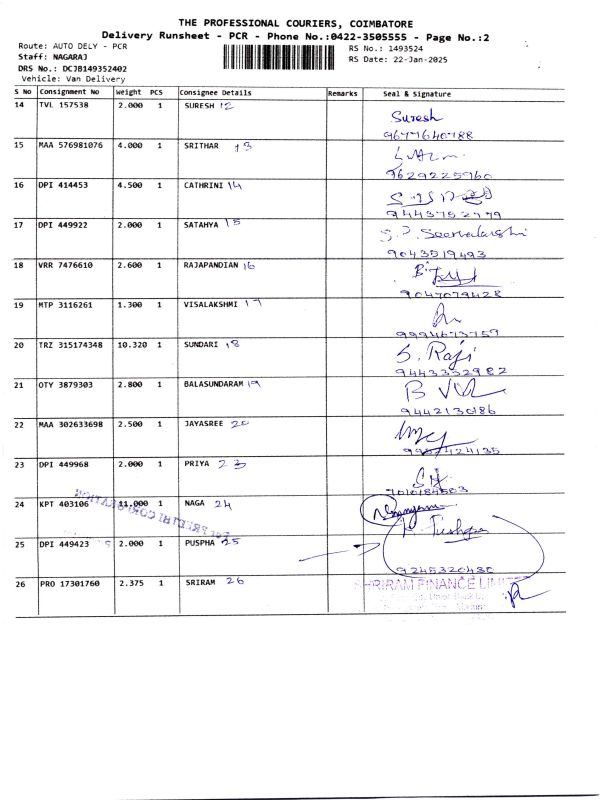 THE PROFESSIONAL COURIERS, COIMBATORE
Delivery Runsheet - PCR - Phone No.:0422-3505555 - Page No.:2
Route: AUTO DELY - PCR
RS No.: 1493524
Staff: NAGARAJ
RS Date: 22-Jan-2025
DRS No.: DCJB149352402
Vehicle: Van Delivery
S No Consignment No Weight PCS Consignee Details Remarks Seal & Signature
14 TVL 157538 2.000 1 SURESH 12 Suresh
9677640788
15 MAA 576981076 4.000 1 SRITHAR 13
9629225960
16 DPI 414453 4.500 1 CATHRINI 14
9443752779
17 DPI 449922 2.000 1 SATAHYA 15
9043519493
18 VRR 7476610 2.600 1 RAJAPANDIAN 16
9047079428
19 MTP 3116261 1.300 1 VISALAKSHMI 17
9994673759
20 TRZ 315174348 10.320 1 SUNDARI 18 S. Raji
9443352982
21 OTY 3879303 2.800 1 BALASUNDARAM 19
9442130186
22 MAA 302633698 2.500 1 JAYASREE 20
424135
23 DPI 449968 2.000 1 PRIYA 23
24 KPT 403106 11.000 1 NAGA 24
25 DPI 449423 2.000 1 PUSPHA 25 Pushpa
9245320430
26 PRO 17301760 2.375 1 SRIRAM 26 SHRIRAM FINANCE LIMITED